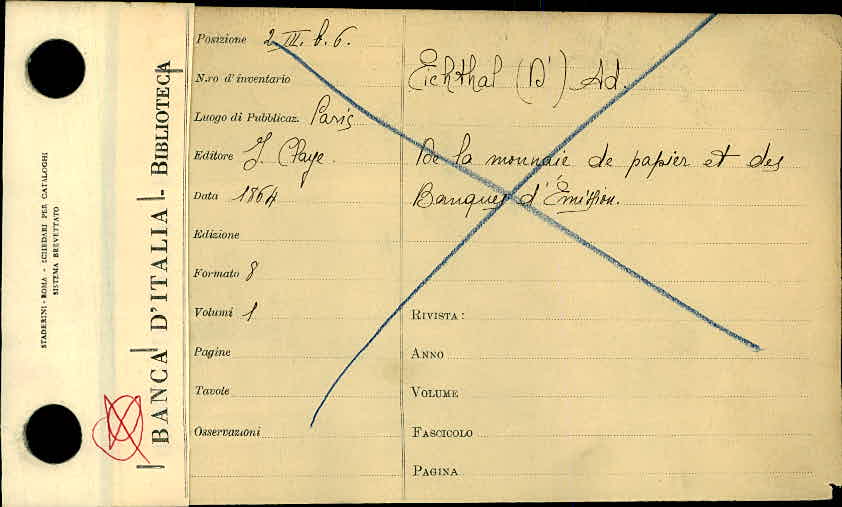 STADERINI - ROMA - SCHEDARI PER CATALOGHI
SISTEMA BREVETTATO
BANCA D'ITALIA - BIBLIOTECA
Posizione 2 III. b. 6.
N.ro d'inventario
Luogo di Pubblicaz. Paris
Editore J. Claye.
Data 1864
Edizione
Formato 8
Volumi 1
Pagine
Tavole
Osservazioni
Eichthal (D') Ad.
De la monnaie de papier et des
Banques d'Émission.
RIVISTA:
ANNO
VOLUME
FASCICOLO
PAGINA